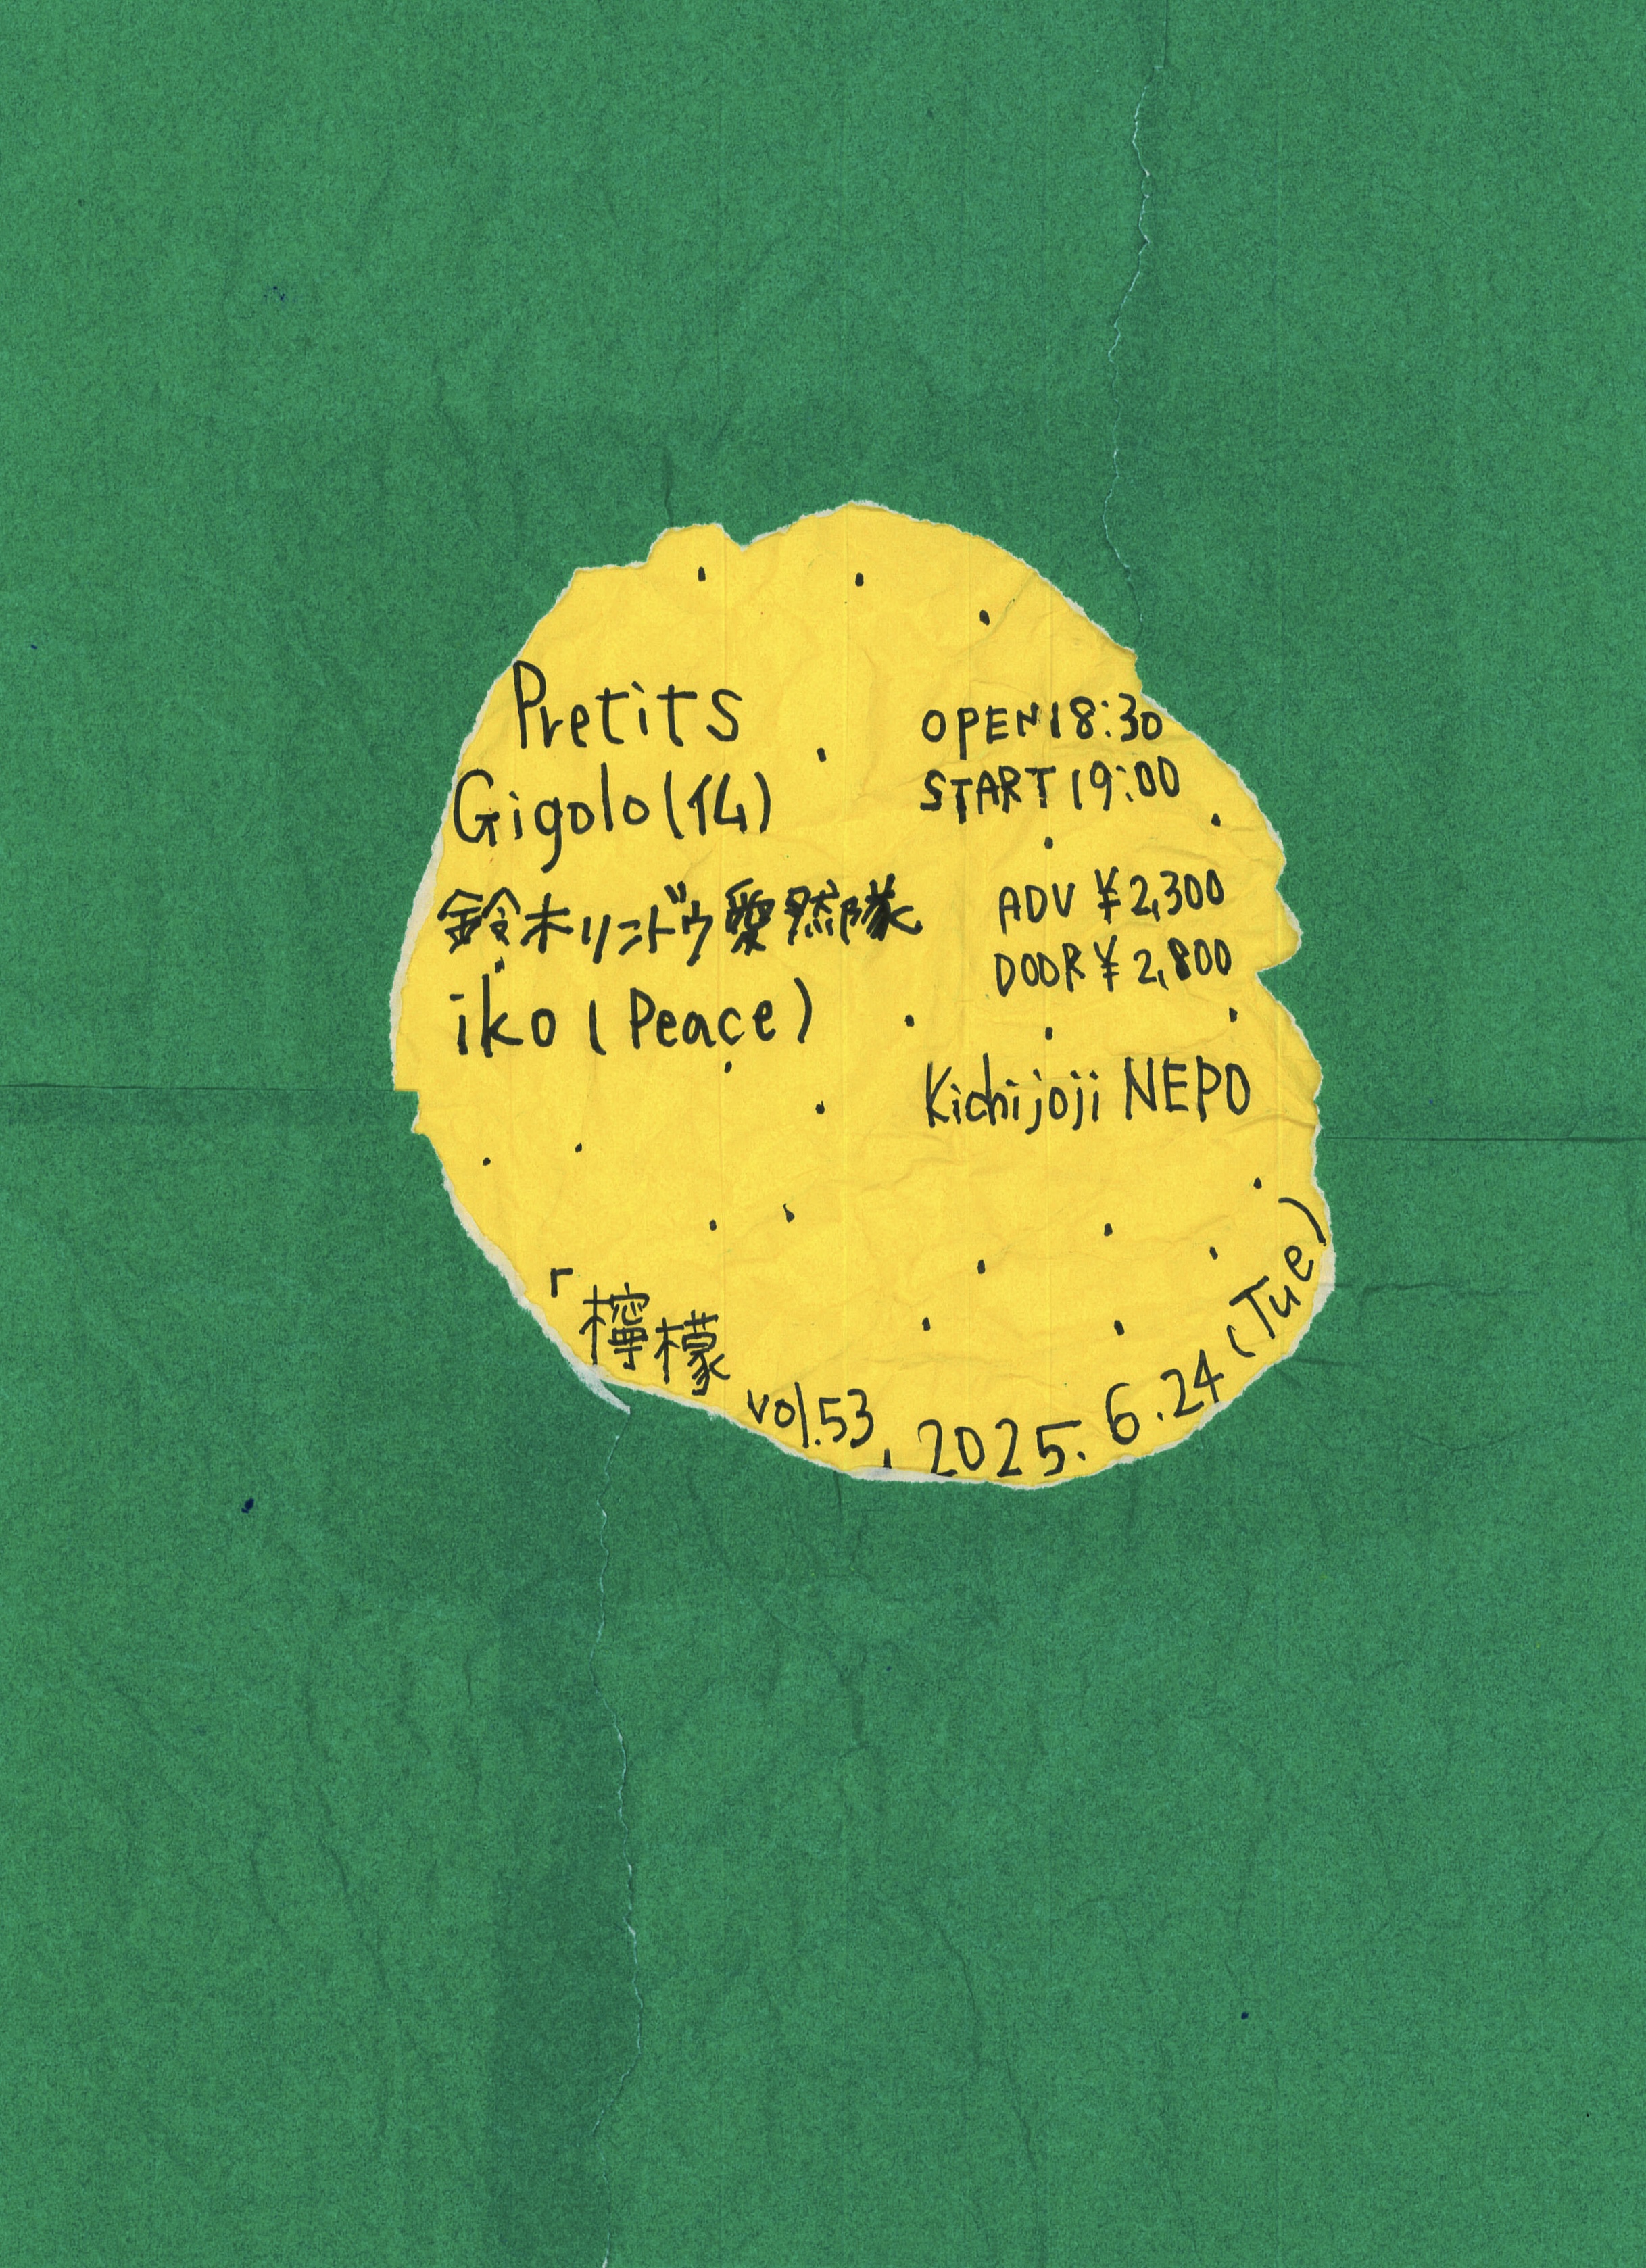 Pretits
Gigolo(14)
鈴木リンドウ愛然隊
iko (Peace)
OPEN 18:30
START 19:00
ADV ¥2,300
DOOR ¥2,800
Kichijoji NEPO
「檸檬 vol.53, 2025.6.24 (Tue)